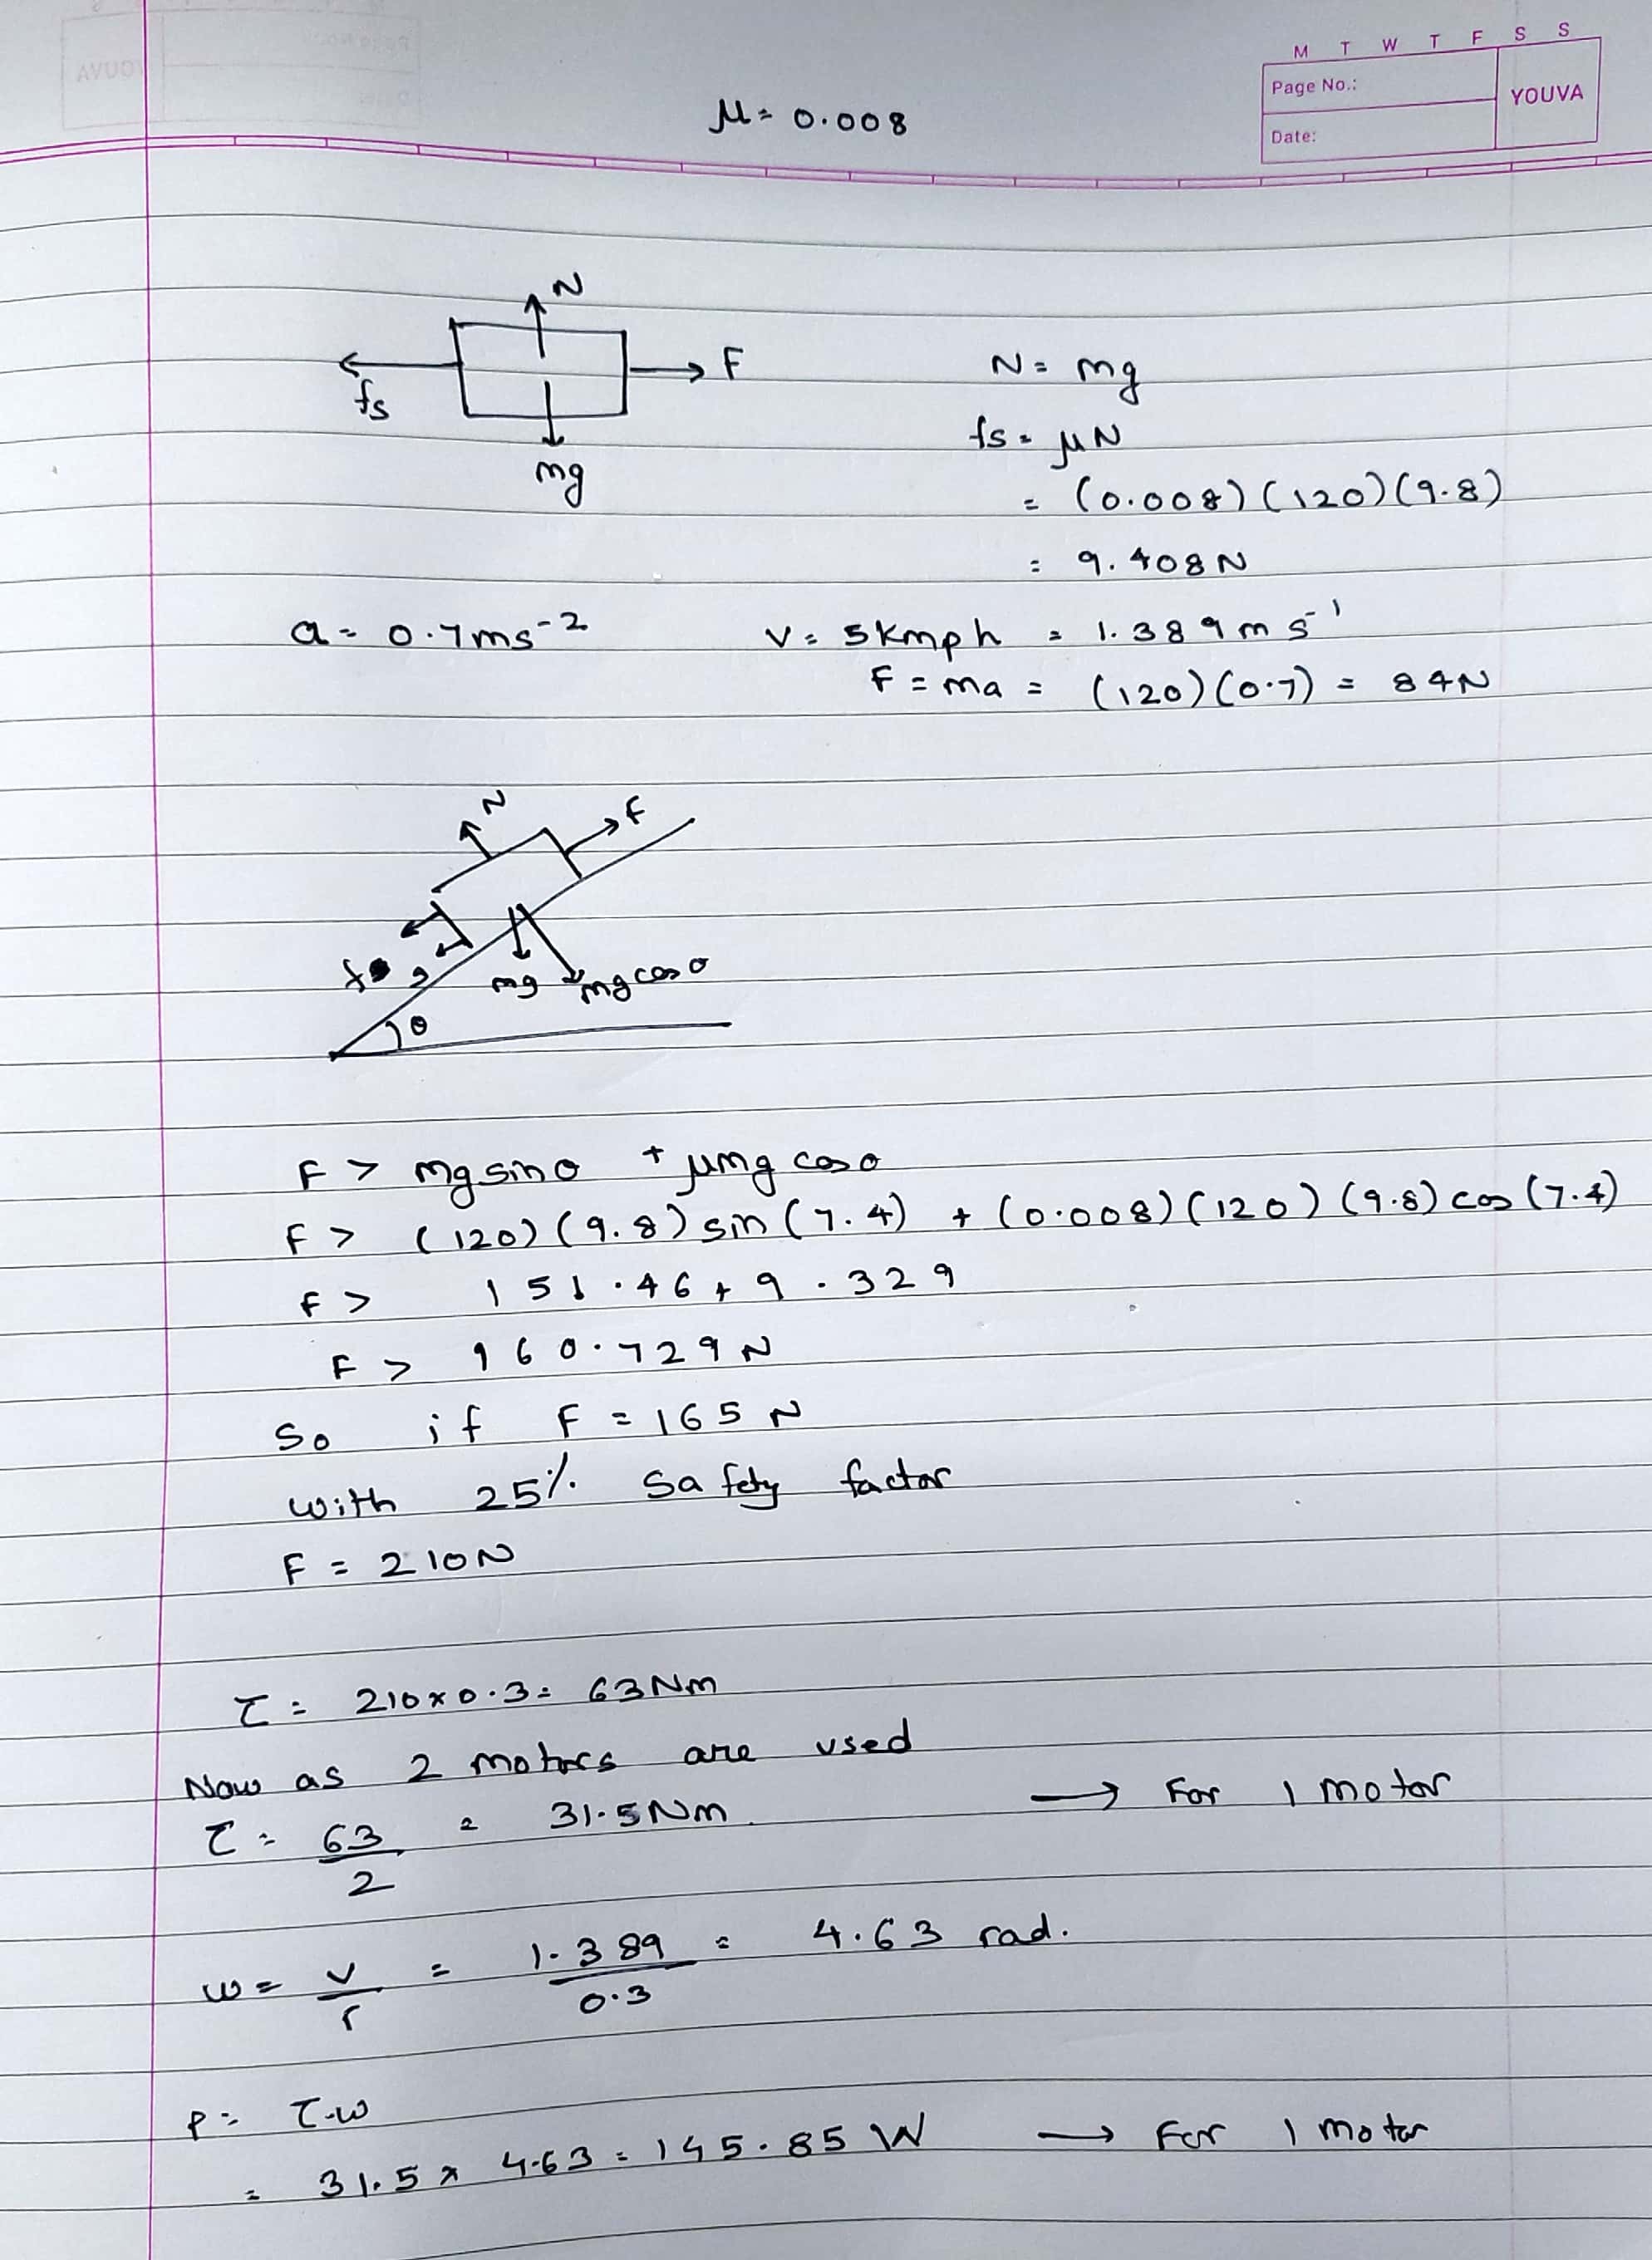 M T W T F S S
Page No.:
YOUVA
Date:
μ = 0.008
N
F
fs
mg
N = mg
fs = μN
= (0.008) (120) (9.8)
= 9.408 N
a = 0.7 ms⁻²
v = 5 kmph = 1.389 m s⁻¹
F = ma = (120) (0.7) = 84N
N
f
mg
mg cos θ
θ
F > mg sin θ + μmg cos θ
F > (120) (9.8) sin (7.4) + (0.008) (120) (9.8) cos (7.4)
F > 151.46 + 9.329
F > 160.729 N
So if F = 165 N
with 25% safety factor
F = 210N
τ = 210 x 0.3 = 63 Nm
Now as 2 motors are used
τ = 63/2 = 31.5 Nm → For 1 motor
w = v/r = 1.389/0.3 = 4.63 rad.
P = τ.w
= 31.5 x 4.63 = 145.85 W → For 1 motor